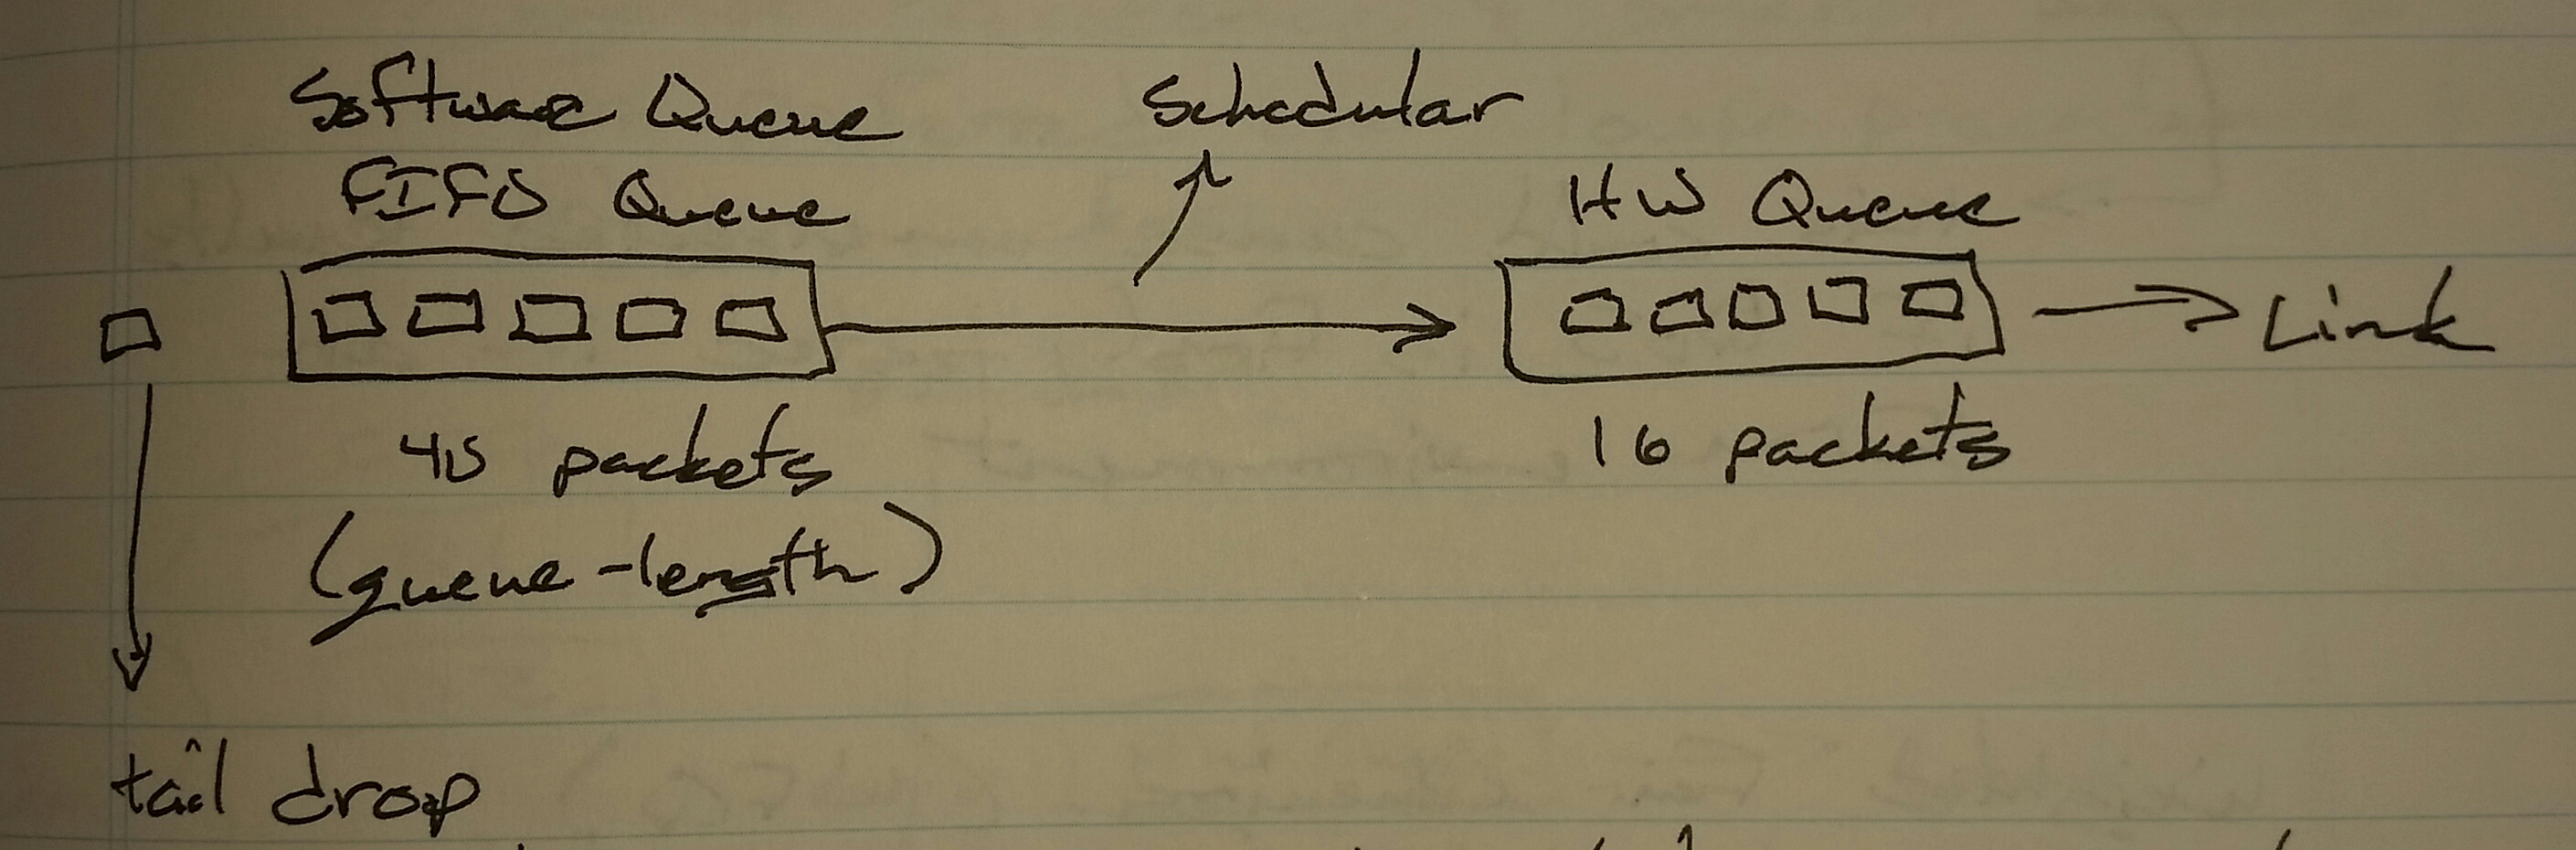 Software Queue
FIFO Queue
Schedular
HW Queue
Link
40 packets
(queue-length)
16 packets
tail drop